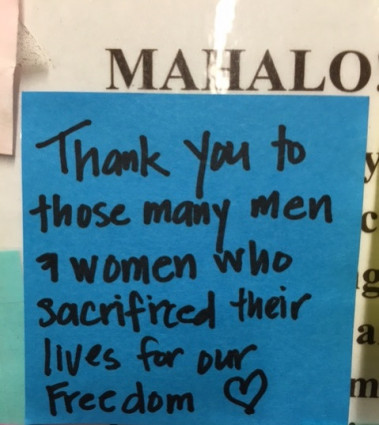 MAHALO!
Thank you to
those many men
& women who
sacrificed their
lives for our
Freedom ♡